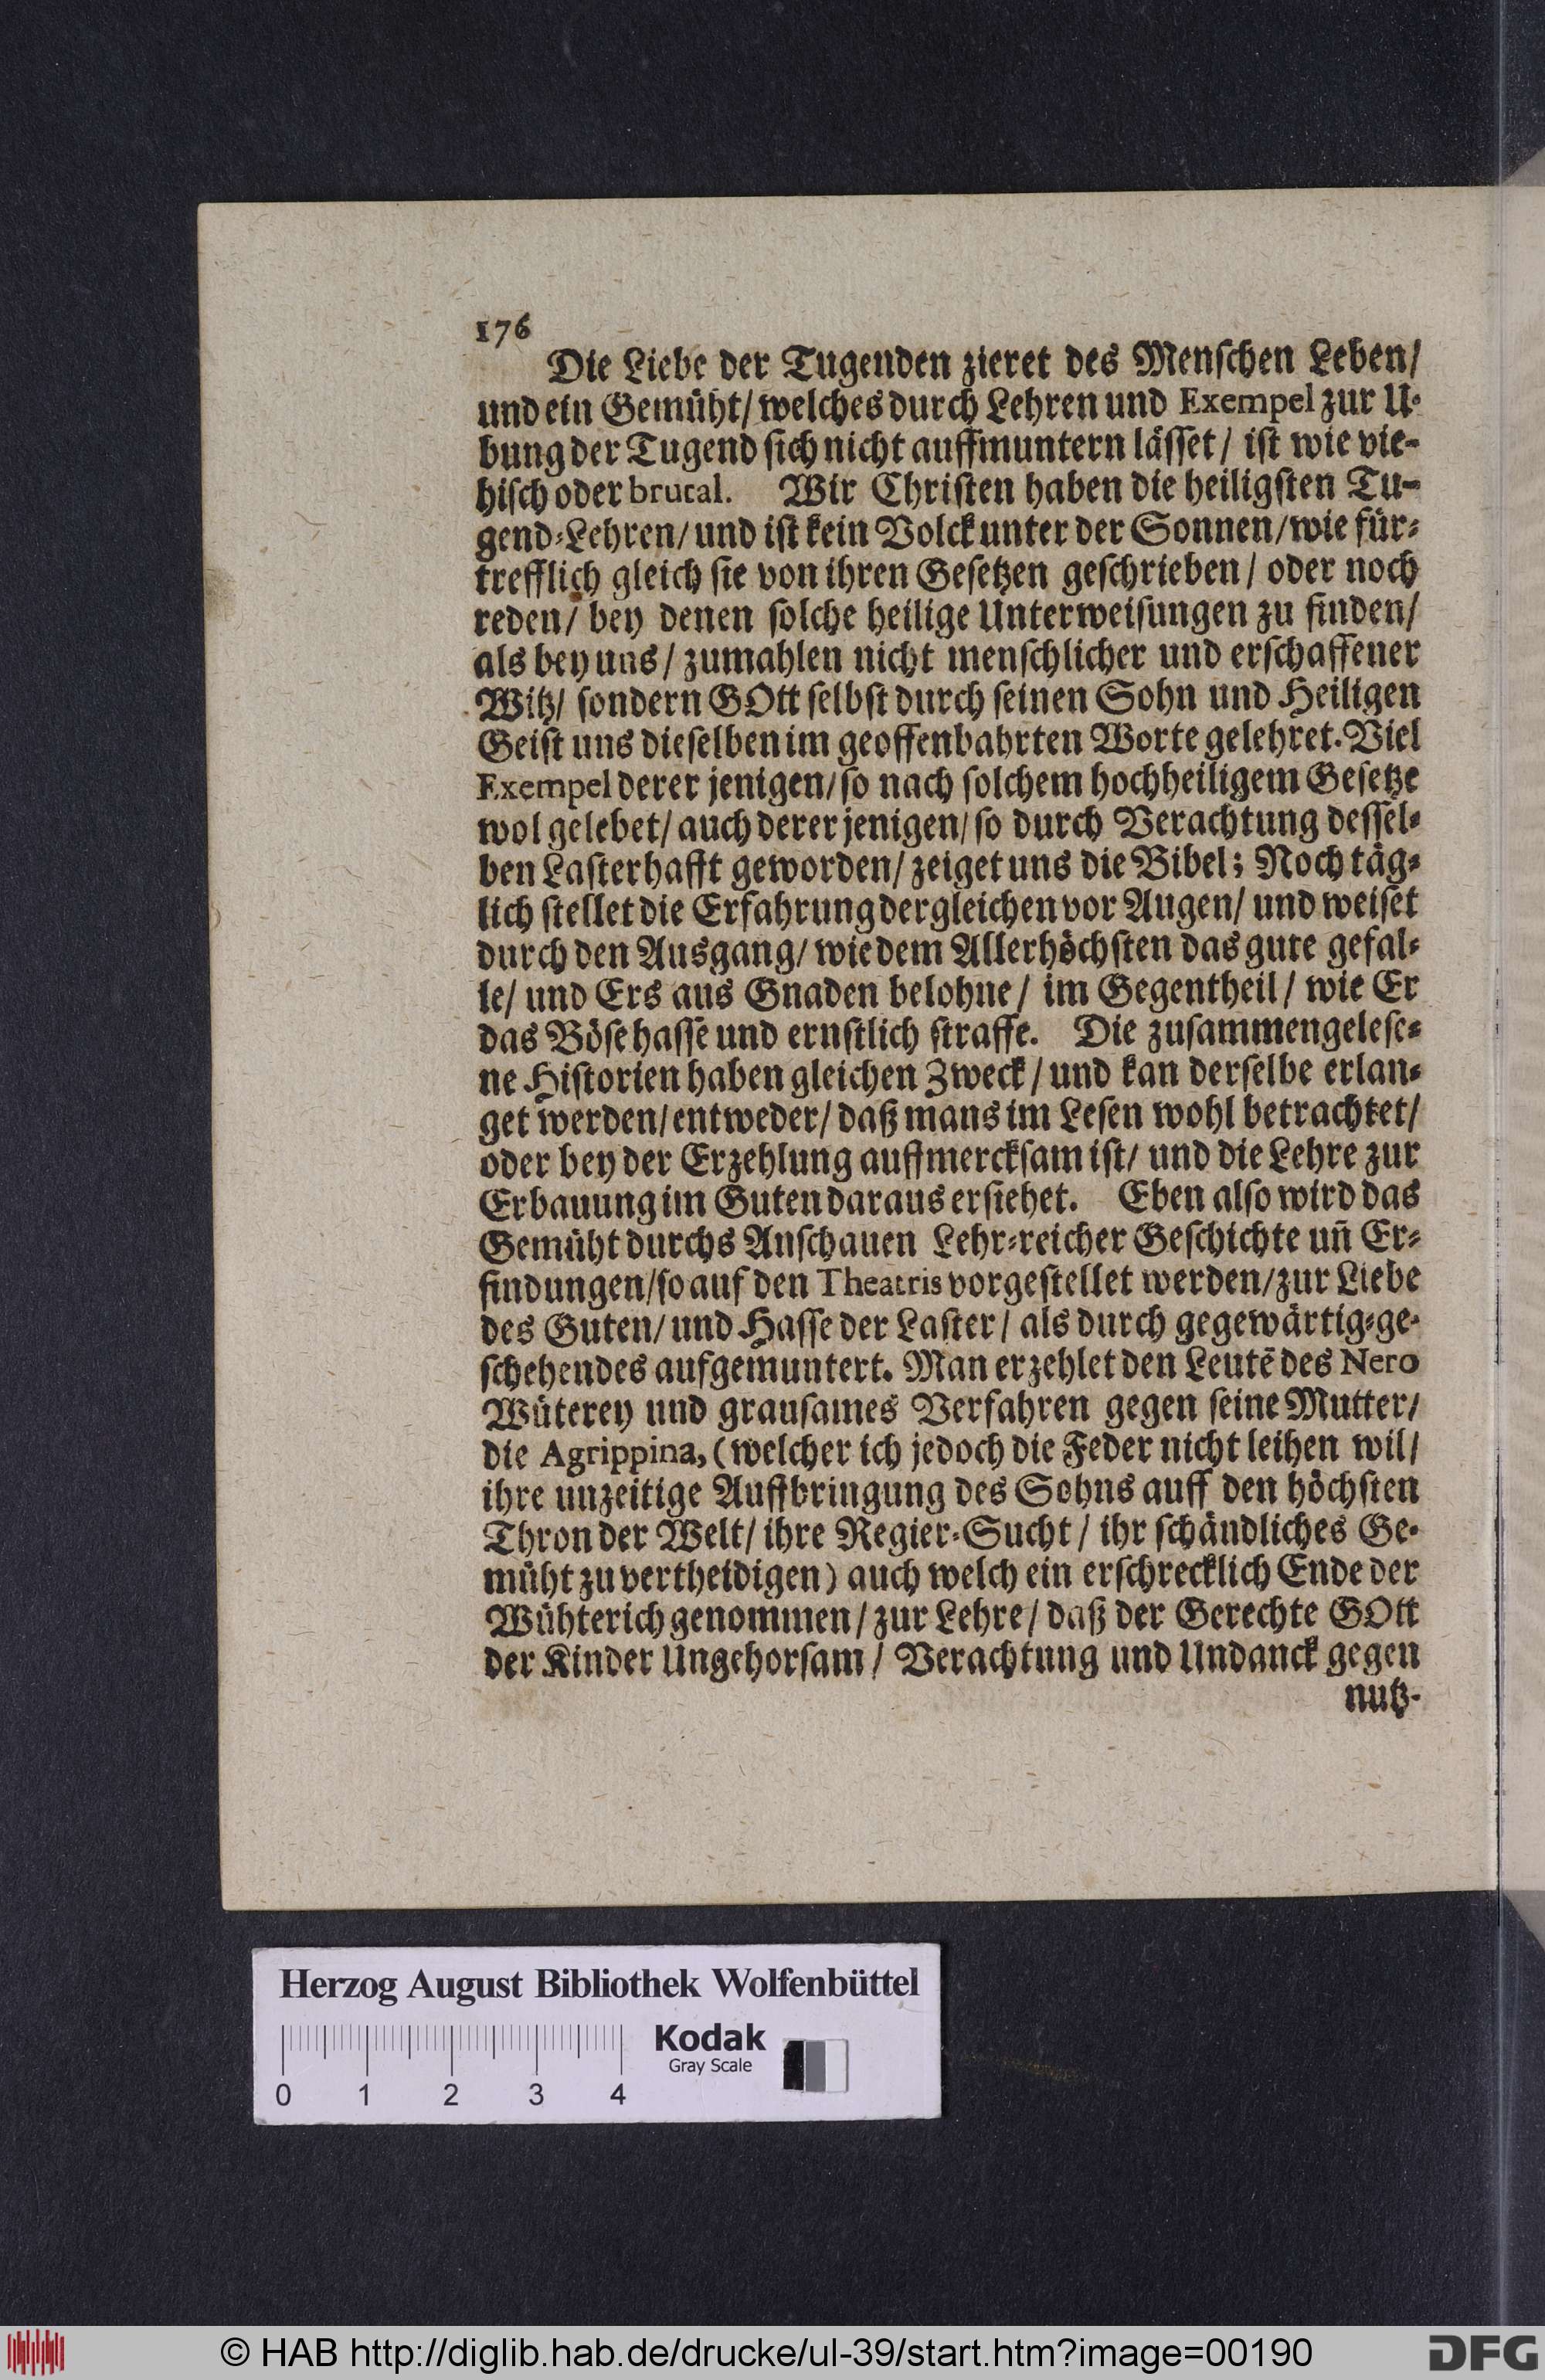 176
Die Liebe der Tugenden zieret des Menſchen Leben/
und ein Gemüht/ welches durch Lehren und Exempel zur U-
bung der Tugend ſich nicht auffmuntern läſſet/ iſt wie vie-
hiſch oder brutal. Wir Chriſten haben die heiligſten Tu-
gend-Lehren/ und iſt kein Volck unter der Sonnen/ wie für-
trefflich gleich ſie von ihren Geſetzen geſchrieben/ oder noch
reden/ bey denen ſolche heilige Unterweiſungen zu finden/
als bey uns/ zumahlen nicht menſchlicher und erſchaffener
Witz/ ſondern GOtt ſelbſt durch ſeinen Sohn und Heiligen
Geiſt uns dieſelben im geoffenbahrten Worte gelehret. Viel
Exempel derer jenigen/ ſo nach ſolchem hochheiligem Geſetze
wol gelebet/ auch derer jenigen/ ſo durch Verachtung deſſel-
ben Laſterhafft geworden/ zeiget uns die Bibel; Noch täg-
lich ſtellet die Erfahrung dergleichen vor Augen/ und weiſet
durch den Ausgang/ wie dem Allerhöchſten das gute gefal-
le/ und Ers aus Gnaden belohne/ im Gegentheil/ wie Er
das Böſe haſſe und ernſtlich ſtraffe. Die zuſammengeleſe-
ne Hiſtorien haben gleichen Zweck/ und kan derſelbe erlan-
get werden/ entweder/ daß mans im Leſen wohl betrachtet/
oder bey der Erzehlung auffmerckſam iſt/ und die Lehre zur
Erbauung im Guten daraus erſiehet. Eben alſo wird das
Gemüht durchs Anſchauen Lehr-reicher Geſchichte uñ Er-
findungen/ ſo auf den Theatris vorgeſtellet werden/ zur Liebe
des Guten/ und Haſſe der Laſter/ als durch gegewärtig-ge-
ſchehendes aufgemuntert. Man erzehlet den Leutē des Nero
Wüterey und grauſames Verfahren gegen ſeine Mutter/
die Agrippina, (welcher ich jedoch die Feder nicht leihen wil/
ihre unzeitige Auffbringung des Sohns auff den höchſten
Thron der Welt/ ihre Regier-Sucht/ ihr ſchändliches Ge-
müht zu vertheidigen) auch welch ein erſchrecklich Ende der
Wühterich genommen/ zur Lehre/ daß der Gerechte GOtt
der Kinder Ungehorſam/ Verachtung und Undanck gegen
nutz-
Herzog August Bibliothek Wolfenbüttel
Kodak
Gray Scale
0 1 2 3 4
© HAB http://diglib.hab.de/drucke/ul-39/start.htm?image=00190
DFG